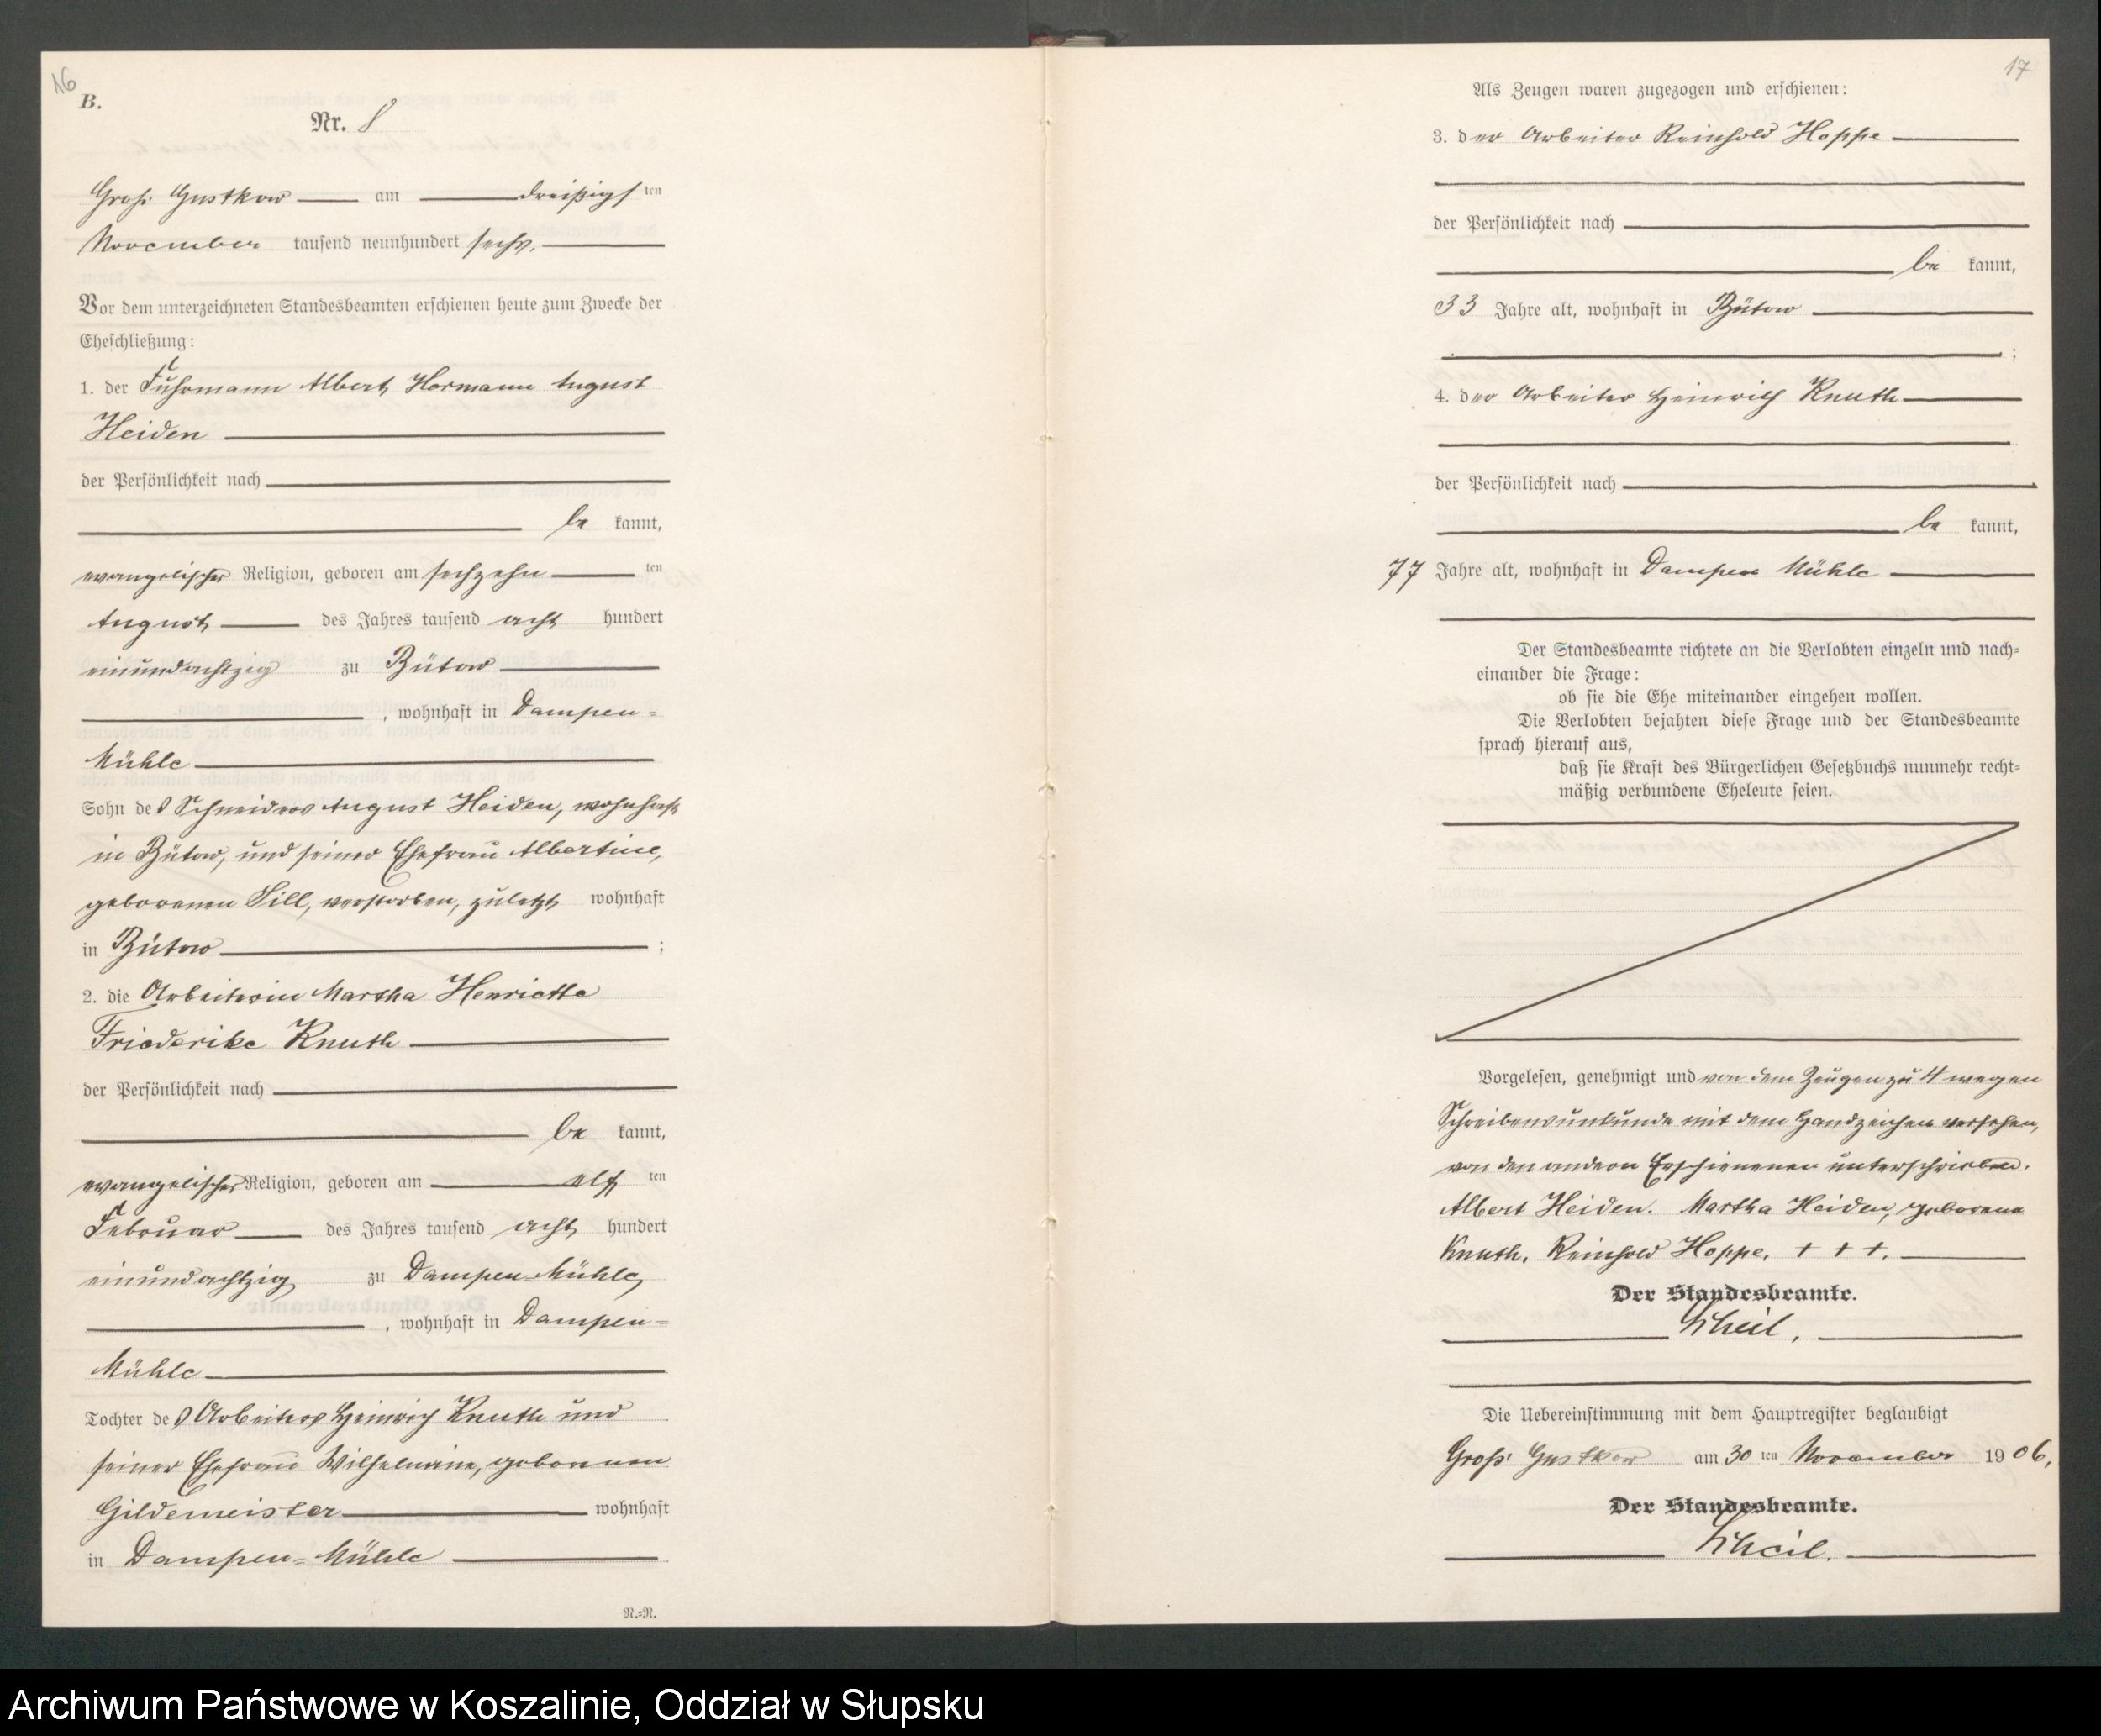 16
B.
Nr. 8
Groß Gustkow am dreißigsten
November tausend neunhundert sechs.
Vor dem unterzeichneten Standesbeamten erschienen heute zum Zwecke der
Eheschließung:
1. der Fuhrmann Albert Hermann August
Heiden
der Persönlichkeit nach
be kannt,
evangelischer Religion, geboren am sechzehn ten
August des Jahres tausend acht hundert
einundachtzig zu Bütow
, wohnhaft in Dampen-
Mühle
Sohn des Schneiders August Heiden, wohnhaft
in Bütow, und seiner Ehefrau Albertine,
geborenen Sill, verstorben, zuletzt wohnhaft
in Bütow ;
2. die Arbeiterin Martha Henriette
Friederike Knuth
der Persönlichkeit nach
be kannt,
evangelischer Religion, geboren am elf ten
Februar des Jahres tausend acht hundert
einundachtzig zu Dampen-Mühle,
, wohnhaft in Dampen-
Mühle
Tochter des Arbeiters Heinrich Knuth und
seiner Ehefrau Wilhelmine, geborenen
Gildemeister wohnhaft
in Dampen-Mühle
N.=N.
17
Als Zeugen waren zugezogen und erschienen:
3. der Arbeiter Reinhold Hoppe
der Persönlichkeit nach
be kannt,
33 Jahre alt, wohnhaft in Bütow
;
4. der Arbeiter Heinrich Knuth
der Persönlichkeit nach
be kannt,
77 Jahre alt, wohnhaft in Dampen Mühle
Der Standesbeamte richtete an die Verlobten einzeln und nach-
einander die Frage:
ob sie die Ehe miteinander eingehen wollen.
Die Verlobten bejahten diese Frage und der Standesbeamte
sprach hierauf aus,
daß sie Kraft des Bürgerlichen Gesetzbuchs nunmehr recht-
mäßig verbundene Eheleute seien.
Vorgelesen, genehmigt und von dem Zeugen zu 4 wegen
Schreibensunkunde mit dem Handzeichen versehen,
von den andern Erschienenen unterschrieben.
Albert Heiden. Martha Heiden, geborene
Knuth. Reinhold Hoppe. + + +.
Der Standesbeamte.
Scheil.
Die Uebereinstimmung mit dem Hauptregister beglaubigt
Groß Gustkow am 30 ten November 1906.
Der Standesbeamte.
Scheil.
Archiwum Państwowe w Koszalinie, Oddział w Słupsku